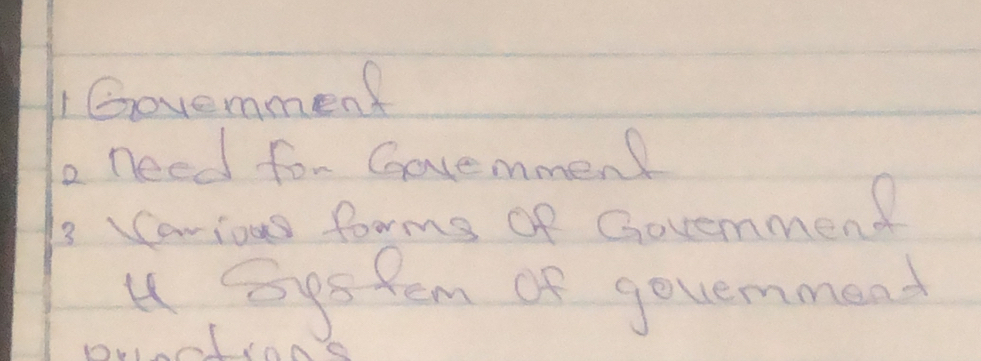 1 Government
2 need for Government
3 Various forms of Government
4 System of government